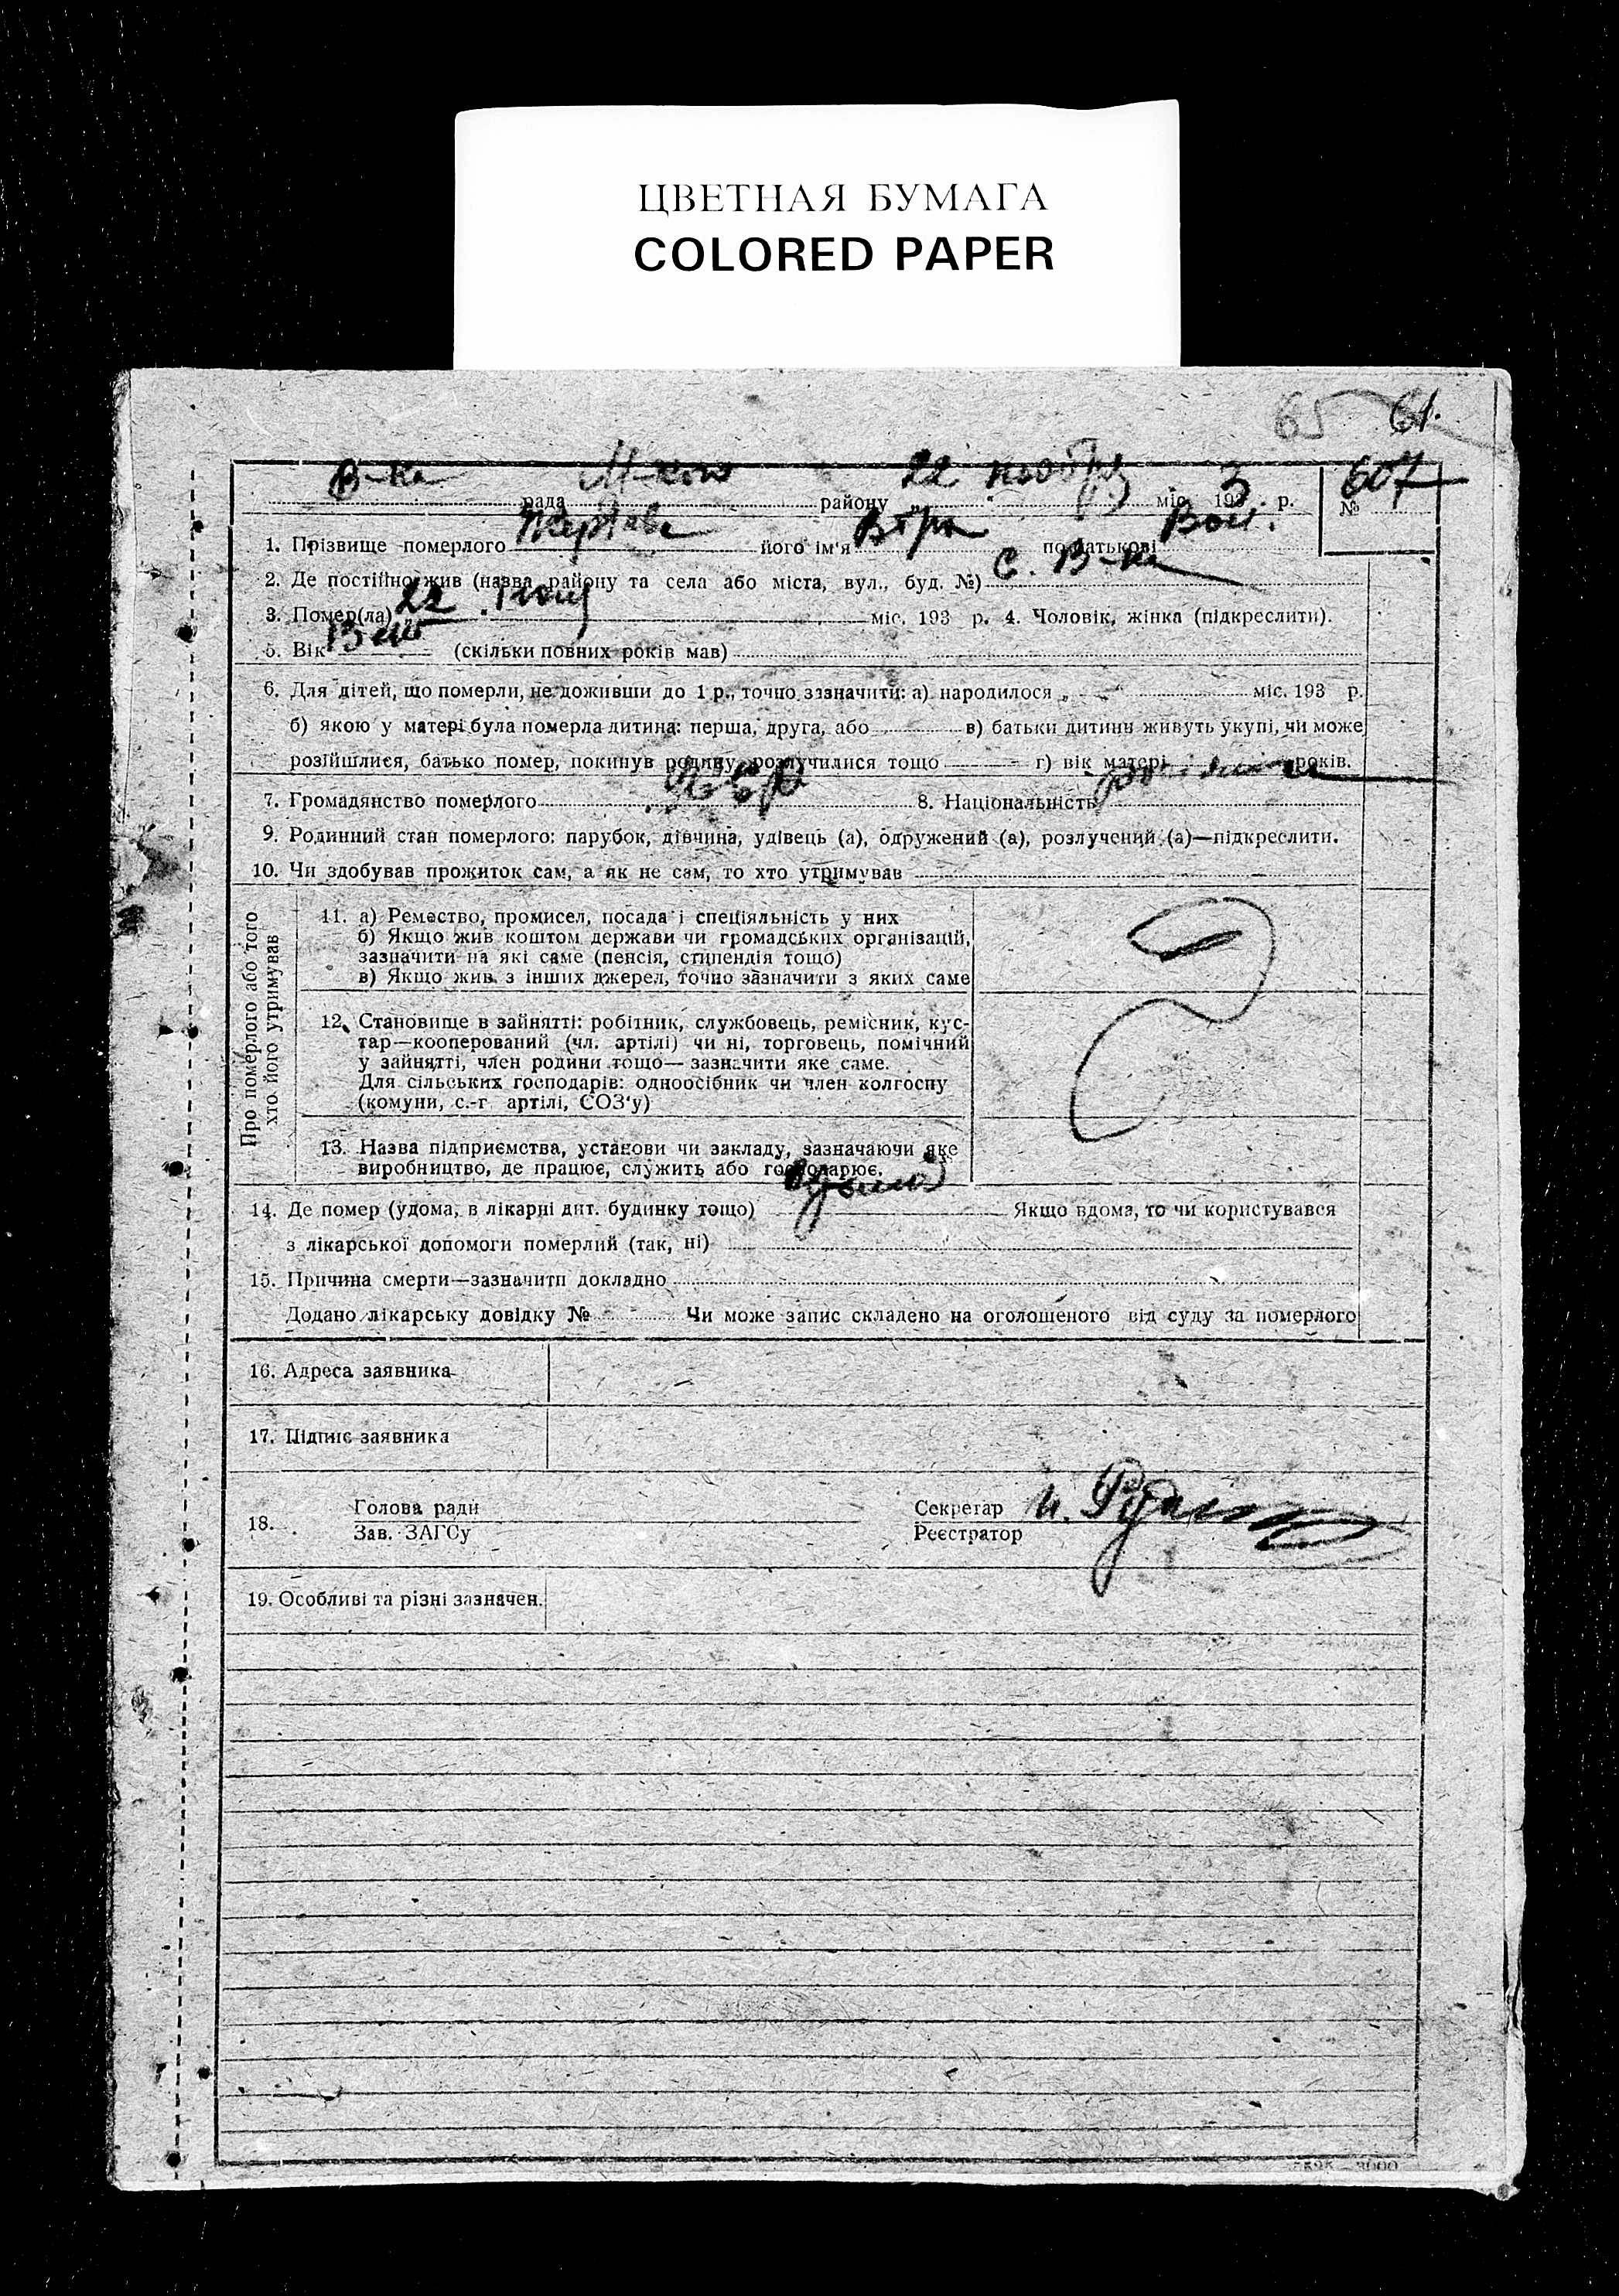 ЦВЕТНАЯ БУМАГА
COLORED PAPER
65 61.
В-ка рада району „22 “ міс. 193 3 р. № 607
1. Прізвище померлого його ім'я по батькові
2. Де постійно жив (назва району та села або міста, вул., буд. №) с. В-ка
3. Помер(ла) „22 міс. 193 р. 4. Чоловік, жінка (підкреслити).
5. Вік (скільки повних років мав)
6. Для дітей, що померли, не доживши до 1 р., точно зазначити: а) народилося „ “ міс. 193 р.
б) якою у матері була померла дитина: перша, друга, або в) батьки дитини живуть укупі, чи може
розійшлися, батько помер, покинув родину, розлучилися тощо г) вік матері років.
7. Громадянство померлого 8. Національність
9. Родинний стан померлого: парубок, дівчина, удівець (а), одружений (а), розлучений (а)—підкреслити.
10. Чи здобував прожиток сам, а як не сам, то хто утримував
Про померлого або того
хто його утримував
11. а) Ремество, промисел, посада і спеціяльність у них
б) Якщо жив коштом держави чи громадських організацій,
зазначити на які саме (пенсія, стипендія тощо)
в) Якщо жив з інших джерел, точно зазначити з яких саме
12. Становище в зайнятті: робітник, службовець, ремісник, кус-
тар—кооперований (чл. артілі) чи ні, торговець, помічний
у зайнятті, член родини тощо— зазначити яке саме.
Для сільських господарів: одноосібник чи член колгоспу
(комуни, с.-г артілі, СОЗ'у)
13. Назва підприємства, установи чи закладу, зазначаючи яке
виробництво, де працює, служить або господарює.
14. Де помер (удома, в лікарні дит. будинку тощо) Якщо вдома, то чи користувався
з лікарської допомоги померлий (так, ні)
15. Причина смерти—зазначити докладно
Додано лікарську довідку № Чи може запис складено на оголошеного від суду за померлого
16. Адреса заявника
17. Підпис заявника
18. Голова ради Секретар
Зав. ЗАГСу Реєстратор
19. Особливі та різні зазначен.